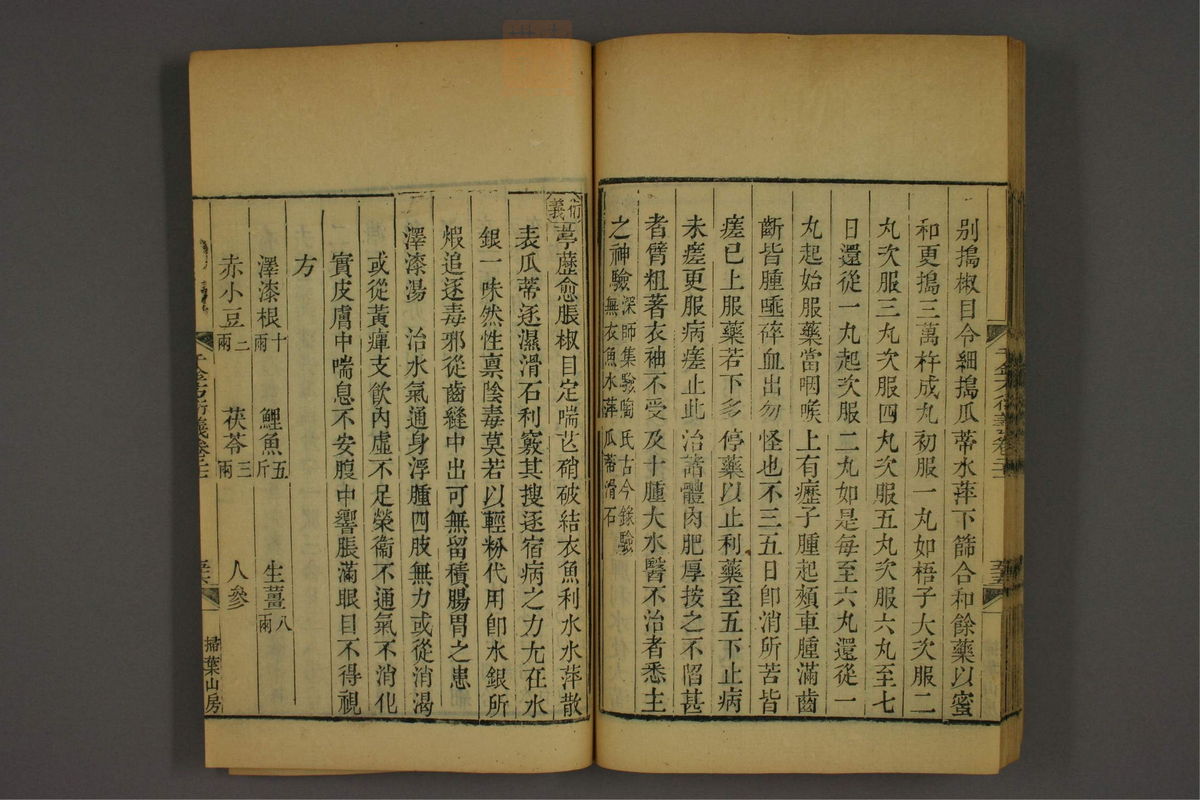 別搗椒目令細搗瓜蒂水萍下篩合和餘藥以蜜
和更搗三萬杵成丸初服一丸如梧子大次服二
丸次服三丸次服四丸次服五丸次服六丸至七
日還從一丸起次服二丸如是每至六丸還從一
丸起始服藥當咽喉上有瘂子腫起頰車腫滿齒
齗皆腫唾碎血出勿怪也不三五日卽消所苦皆
瘥已上服藥若下多停藥以止利藥至五下止病
未瘥更服病瘥止此治諸體肉肥厚按之不陷甚
者臂粗著衣袖不受及十腫大水醫不治者悉主
之神驗深師集驗陶氏古今錄驗無衣魚水萍瓜蒂滑石
衍義葶藶愈脹椒目定喘芒硝破結衣魚利水水萍散
表瓜蒂逐濕滑石利竅其搜逐宿病之力尢在水
銀一味然性禀陰毒莫若以輕粉代用卽水銀所
煆追逐毒邪從齒縫中出可無留積腸胃之患
澤漆湯 治水氣通身浮腫四肢無力或從消渴
或從黃癉支飲內虛不足榮衞不通氣不消化
實皮膚中喘息不安腹中響脹滿眼目不得視
方
澤漆根十兩 鯉魚五斤 生薑八兩
赤小豆二兩 茯苓三兩 人參
千金方衍義卷
掃葉山房